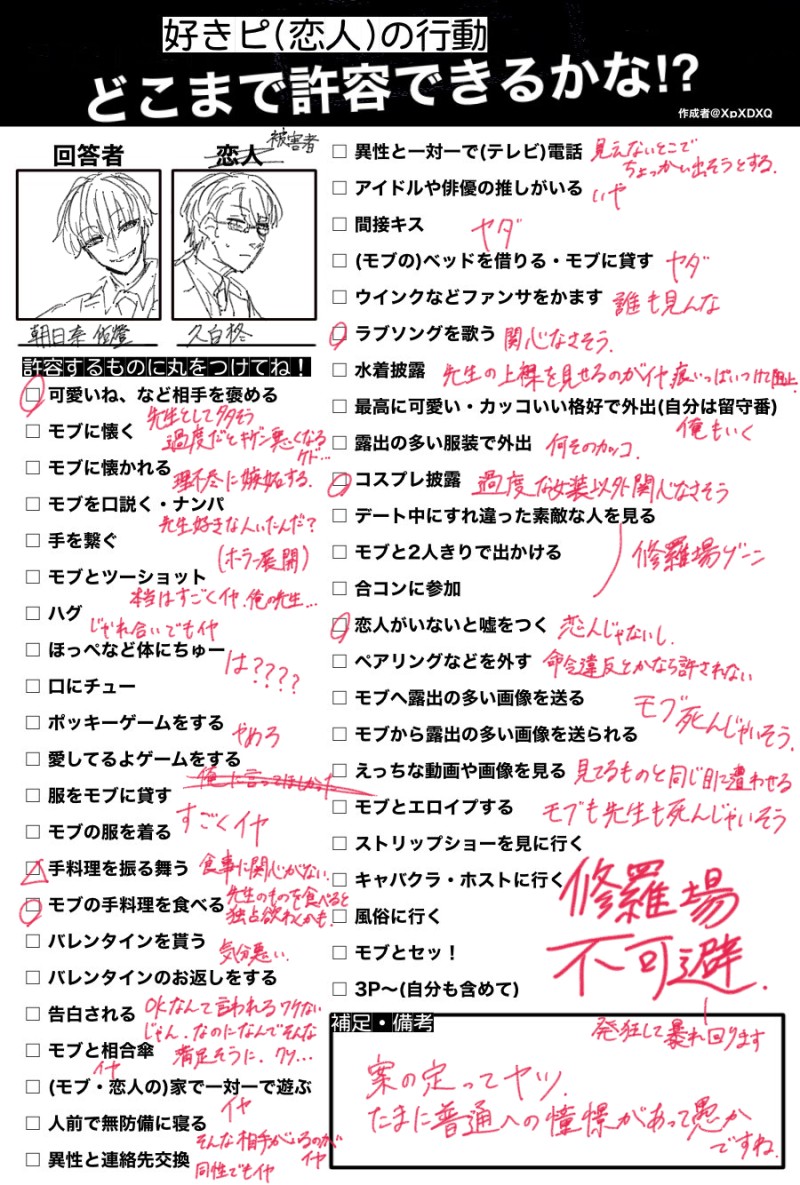 好きピ(恋人)の行動
どこまで許容できるかな!?
作成者@XpXDXQ
回答者
恋人
被害者
朝日奈 佑燈
久白柊
許容するものに丸をつけてね！
□ 可愛いね、など相手を褒める
□ モブに懐く
先生として多そう
過度だとキゲン悪くなる
ケド…
□ モブに懐かれる
理不尽に嫉妬する.
□ モブを口説く・ナンパ
先生好きな人いたんだ?
□ 手を繋ぐ
(ホラー展開)
□ モブとツーショット
本当はすごくイヤ.俺の先生…
□ ハグ
じゃれ合いでもイヤ
□ ほっぺなど体にちゅー
は????
□ 口にチュー
□ ポッキーゲームをする
やめろ
□ 愛してるよゲームをする
俺に言ってほしかった
□ 服をモブに貸す
□ モブの服を着る
すごくイヤ
□ 手料理を振る舞う
食事に関心がない.
□ モブの手料理を食べる
先生のものを食べると
独占欲わくかも.
□ バレンタインを貰う
気分悪い.
□ バレンタインのお返しをする
□ 告白される
OKなんて言われるワケない
じゃん.なのになんでそんな
満足そうに.クソ…
□ モブと相合傘
イヤ
□ (モブ・恋人の)家で一対一で遊ぶ
□ 人前で無防備に寝る
イヤ
□ 異性と連絡先交換
そんな相手がいるのが
イヤ
同性でもイヤ
□ 異性と一対一で(テレビ)電話
見えないとこで
ちょっかい出そうとする.
□ アイドルや俳優の推しがいる
いや
□ 間接キス
ヤダ
□ (モブの)ベッドを借りる・モブに貸す
ヤダ
□ ウインクなどファンサをかます
誰も見んな
□ ラブソングを歌う
関心なさそう.
□ 水着披露
先生の上裸を見せるのがイヤ.痕いっぱいつけて阻止.
□ 最高に可愛い・カッコいい格好で外出(自分は留守番)
俺もいく
□ 露出の多い服装で外出
何そのカッコ.
□ コスプレ披露
過度な女装以外関心なさそう
□ デート中にすれ違った素敵な人を見る
□ モブと2人きりで出かける
修羅場ゲーン
□ 合コンに参加
□ 恋人がいないと嘘をつく
恋人じゃないし.
□ ペアリングなどを外す
命令違反とかなら許されない
□ モブへ露出の多い画像を送る
モブ死んじゃいそう.
□ モブから露出の多い画像を送られる
□ えっちな動画や画像を見る
見てるものと同じ目に遭わせる
□ モブとエロイプする
モブも先生も死んじゃいそう
□ ストリップショーを見に行く
□ キャバクラ・ホストに行く
□ 風俗に行く
□ モブとセッ！
□ 3P〜(自分も含めて)
修羅場
不可避.
発狂して暴れ回ります
補足・備考
案の定ってヤツ.
たまに普通への憧憬があって愚か
ですね.